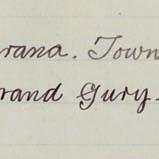 rana. Town
rand Gury.